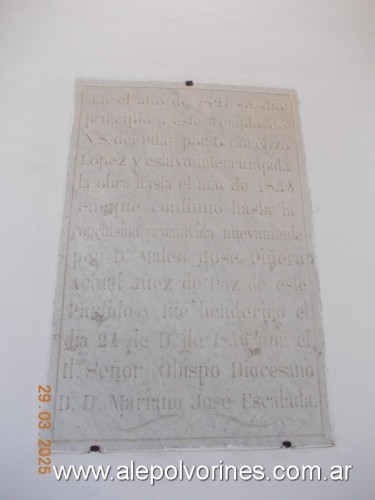 En el año de 1821 se dio
principio a este Templo de
N.S. del Pilar por D. Lorenzo
Lopez y estuvo interrumpida
la obra hasta el año de 1852
en que continuó hasta la
conclusion promovida nuevamente
por D. Mateo Jose Piñero
Actual Juez de Paz de este
Partido y fue bendecido el
dia 24 de D. de 1856 por el
Il. Señor Obispo Diocesano
D. D. Mariano José Escalada.
29 03 2025
www.alepolvorines.com.ar